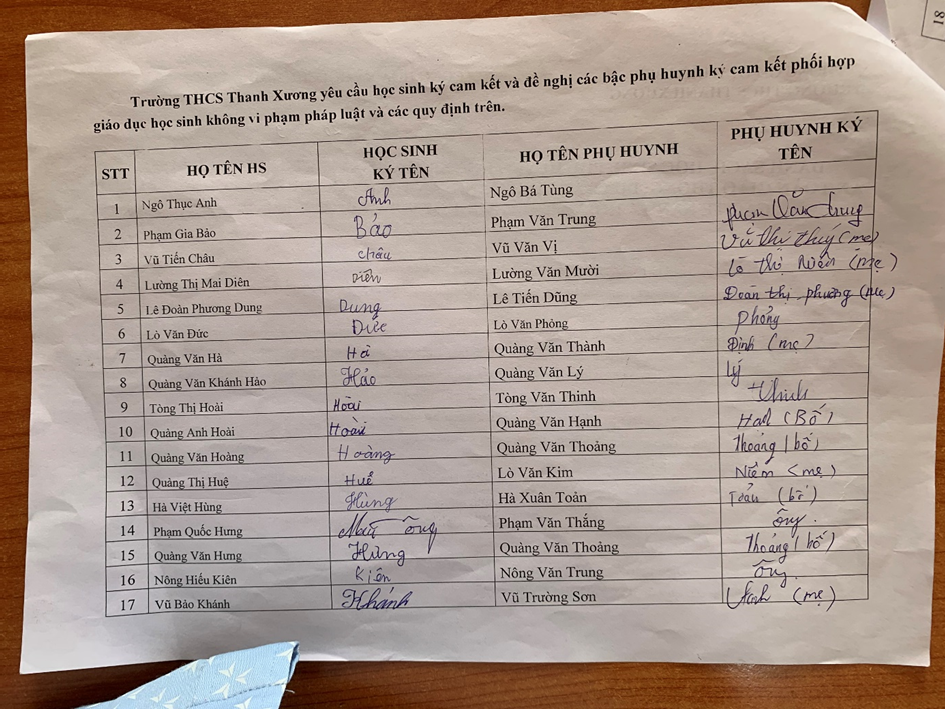 Trường THCS Thanh Xương yêu cầu học sinh ký cam kết và đề nghị các bậc phụ huynh ký cam kết phối hợp
giáo dục học sinh không vi phạm pháp luật và các quy định trên.
STT HỌ TÊN HS HỌC SINH KÝ TÊN HỌ TÊN PHỤ HUYNH PHỤ HUYNH KÝ TÊN
1 Ngô Thục Anh Anh Ngô Bá Tùng
2 Phạm Gia Bảo Bảo Phạm Văn Trung Phạm Văn Trung
3 Vũ Tiến Châu Châu Vũ Văn Vị Vũ thị thuý (mẹ)
4 Lường Thị Mai Diên Diên Lường Văn Mười Lò thị (mẹ)
5 Lê Đoàn Phương Dung Dung Lê Tiến Dũng Đoàn thị phương (mẹ)
6 Lò Văn Đức Đức Lò Văn Phỏng phỏng
7 Quàng Văn Hà Hà Quàng Văn Thành Định (mẹ)
8 Quàng Văn Khánh Hảo Hảo Quàng Văn Lý Lý
9 Tòng Thị Hoài Hoài Tòng Văn Thinh Thinh
10 Quàng Anh Hoài Hoài Quàng Văn Hạnh (Bố)
11 Quàng Văn Hoàng Hoàng Quàng Văn Thoảng Thoảng (bố)
12 Quàng Thị Huệ Huế Lò Văn Kim Niềm (mẹ)
13 Hà Việt Hùng Hùng Hà Xuân Toản Toản (bố)
14 Phạm Quốc Hưng Phạm Văn Thắng
15 Quàng Văn Hưng Hưng Quàng Văn Thoảng Thoảng (bố)
16 Nông Hiếu Kiên Kiên Nông Văn Trung
17 Vũ Bảo Khánh Khánh Vũ Trường Sơn (mẹ)
18